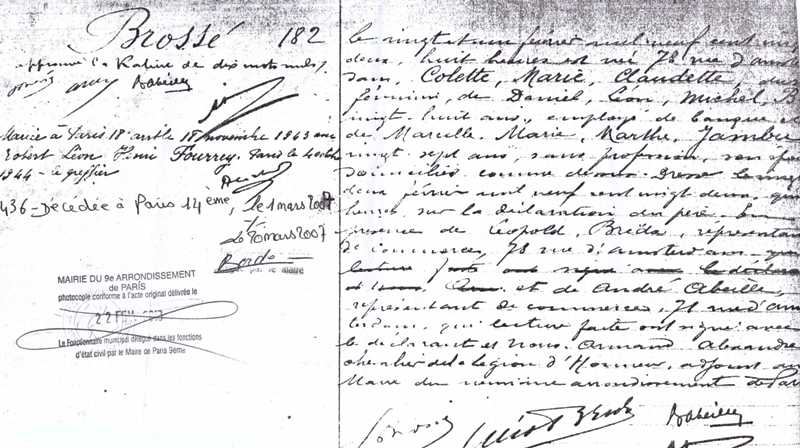 Brossé 182
approuvé la Rature de dix mots nuls
Abeille
Mariée à Paris 18e arrdt le 18 novembre 1943 avec
Robert Léon Henri Fourrey. Paris le 4 octobre
1944 - le greffier
436 - Décédée à Paris 14ème, le 1 mars 2007
Le 20 mars 2007
MAIRIE DU 9e ARRONDISSEMENT
de PARIS
photocopie conforme à l'acte original délivrée le
Le Fonctionnaire municipal délégué dans les fonctions
d'état civil par le Maire de Paris 9ème
le vingt et un février mil neuf cent vingt
deux, huit heures est née 78 rue d'Amst
dam Colette, Marie, Claudette, du sexe
féminin, de Daniel, Léon, Michel, B
vingt huit ans, employé de banque et
de Marcelle, Marie, Marthe, Jambu
vingt sept ans, sans profession, son épouse
domiciliés comme dessus. Dressé le vingt
deux février mil neuf cent vingt deux,
heures, sur la déclaration du père. En
présence de Léopold, Bréda, représentant
de commerce, 78 rue d'Amsterdam,
lecture faite ont signé avec le déclarant
et de André Abeille,
représentant de commerce, 78 rue d'Ams
terdam, qui lecture faite ont signé avec
le déclarant et Nous. Armand Alexandre
chevalier de la Légion d'Honneur, adjoint au
Maire du neuvième arrondissement de Paris
Abeille